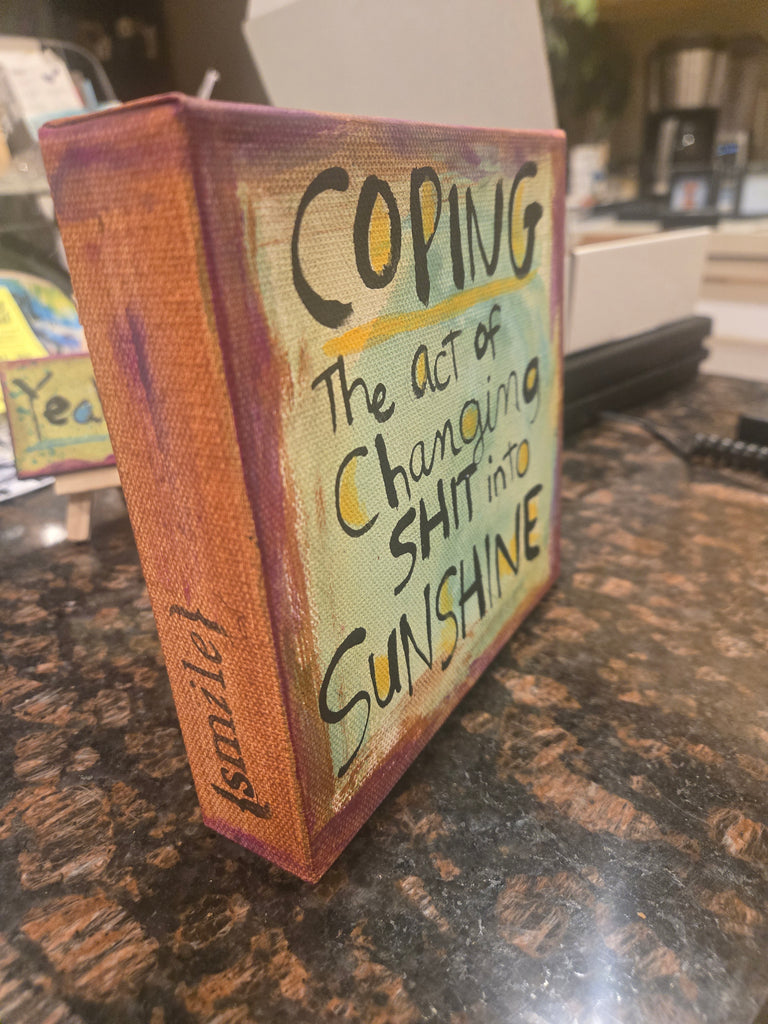 COPING
The act of
Changing
SHIT into
SUNSHINE
{smile}
Yea